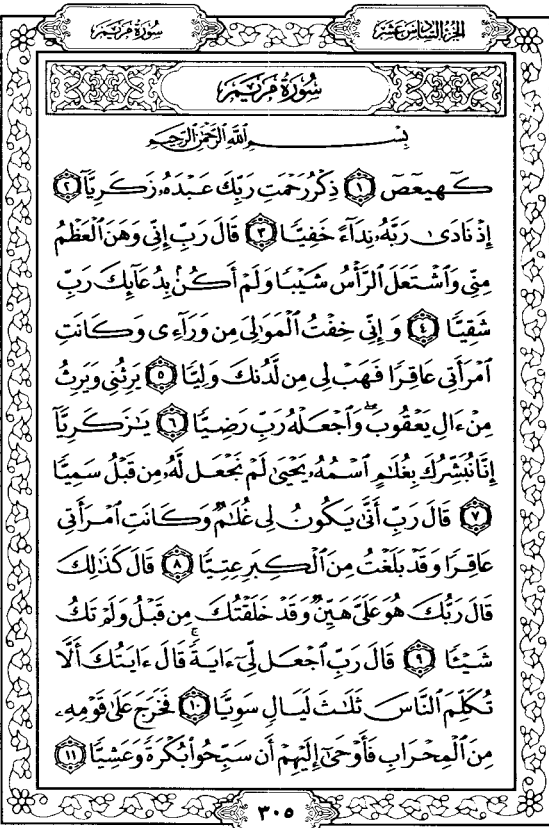 سُورَةُ مَرْيَمَ
الجُزْءُ السَّادِسَ عَشَرَ
سُورَةُ مَرْيَمَ
بِسْمِ ٱللَّهِ ٱلرَّحْمَٰنِ ٱلرَّحِيمِ
كٓهيعٓصٓ ١ ذِكْرُ رَحْمَتِ رَبِّكَ عَبْدَهُۥ زَكَرِيَّآ ٢
إِذْ نَادَىٰ رَبَّهُۥ نِدَآءً خَفِيًّا ٣ قَالَ رَبِّ إِنِّى وَهَنَ ٱلْعَظْمُ
مِنِّى وَٱشْتَعَلَ ٱلرَّأْسُ شَيْبًا وَلَمْ أَكُنۢ بِدُعَآئِكَ رَبِّ
شَقِيًّا ٤ وَإِنِّى خِفْتُ ٱلْمَوَٰلِىَ مِن وَرَآءِى وَكَانَتِ
ٱمْرَأَتِى عَاقِرًا فَهَبْ لِى مِن لَّدُنكَ وَلِيًّا ٥ يَرِثُنِى وَيَرِثُ
مِنْ ءَالِ يَعْقُوبَ ۖ وَٱجْعَلْهُ رَبِّ رَضِيًّا ٦ يَٰزَكَرِيَّآ
إِنَّا نُبَشِّرُكَ بِغُلَٰمٍ ٱسْمُهُۥ يَحْيَىٰ لَمْ نَجْعَل لَّهُۥ مِن قَبْلُ سَمِيًّا
٧ قَالَ رَبِّ أَنَّىٰ يَكُونُ لِى غُلَٰمٌ وَكَانَتِ ٱمْرَأَتِى
عَاقِرًا وَقَدْ بَلَغْتُ مِنَ ٱلْكِبَرِ عِتِيًّا ٨ قَالَ كَذَٰلِكَ
قَالَ رَبُّكَ هُوَ عَلَىَّ هَيِّنٌ وَقَدْ خَلَقْتُكَ مِن قَبْلُ وَلَمْ تَكُ
شَيْـًٔا ٩ قَالَ رَبِّ ٱجْعَل لِّىٓ ءَايَةً ۚ قَالَ ءَايَتُكَ أَلَّا
تُكَلِّمَ ٱلنَّاسَ ثَلَٰثَ لَيَالٍ سَوِيًّا ١٠ فَخَرَجَ عَلَىٰ قَوْمِهِۦ
مِنَ ٱلْمِحْرَابِ فَأَوْحَىٰٓ إِلَيْهِمْ أَن سَبِّحُوا۟ بُكْرَةً وَعَشِيًّا ١١
٣٠٥